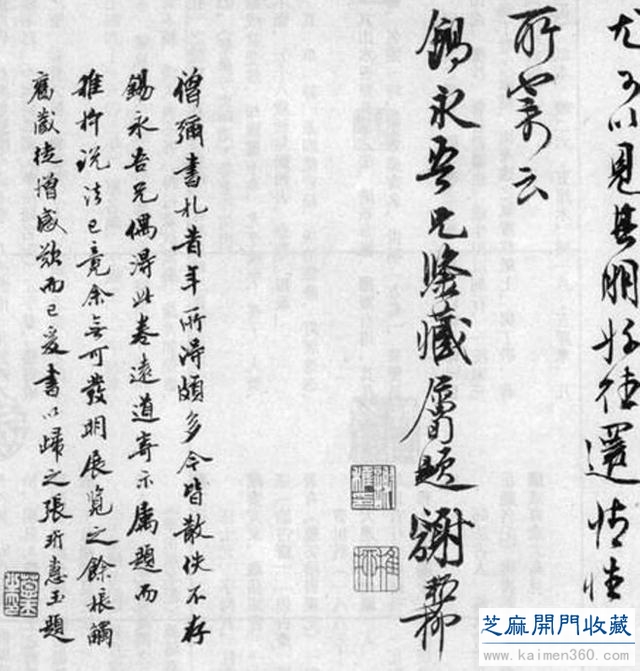 尤可以見其朋好往還情性
所寄云
錫永吾兄鑒藏屬題謝稚柳
僧彌書札昔年所得頗多今皆散佚不存
錫永吾兄偶得此卷遠道寄示屬題而
稚柳說法已竟余無可發明展覽之餘棖觸
舊藏徒增感歎而已爰書以歸之張珩蔥玉題
芝麻開門收藏
www.kaimen360.com